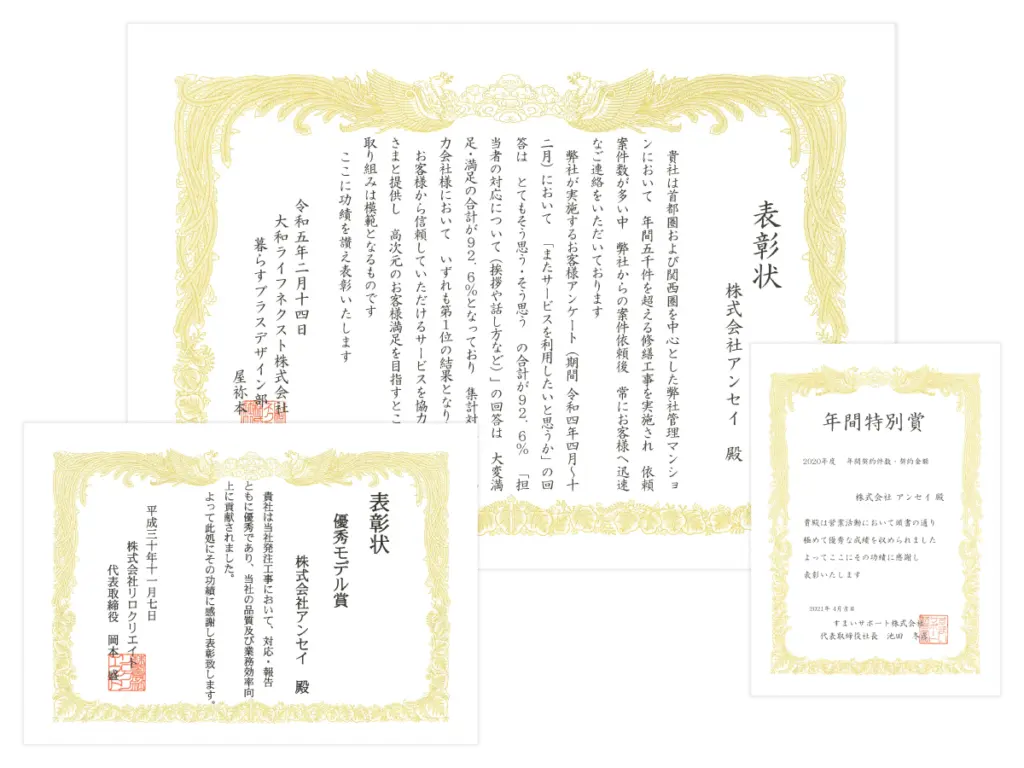 表彰状
株式会社アンセイ 殿
貴社は首都圏および関西圏を中心とした弊社管理マンショ
ンにおいて 年間五千件を超える修繕工事を実施され 依頼
案件数が多い中 弊社からの案件依頼後 常にお客様へ迅速
なご連絡をいただいております
弊社が実施するお客様アンケート(期間 令和四年四月〜十
二月)において 「またサービスを利用したいと思うか」の回
答は とてもそう思う・そう思う の合計が92.6% 「担
当者の対応について(挨拶や話し方など)」の回答は 大変満
足・満足の合計が92.6%となっており 集計対
力会社様において いずれも第1位の結果となり
お客様から信頼していただけるサービスを協力
さまと提供し 高次元のお客様満足を目指すとこ
取り組みは模範となるものです
ここに功績を讃え表彰いたします
令和五年二月十四日
大和ライフネクスト株式会社
暮らすプラスデザイン部
屋祢本
表彰状
優秀モデル賞
株式会社アンセイ 殿
貴社は当社発注工事において、対応・報告
ともに優秀であり、当社の品質及び業務効率向
上に貢献されました。
よって此処にその功績に感謝し表彰致します。
平成三十年十一月七日
株式会社リロクリエイト
代表取締役 岡本 盛
年間特別賞
2020年度 年間契約件数・契約金額
株式会社 アンセイ 殿
貴殿は営業活動において頭書の通り
極めて優秀な成績を収められました
よってここにその功績に感謝し
表彰いたします
2021年 4月吉日
すまいサポート株式会社
代表取締役社長 池田